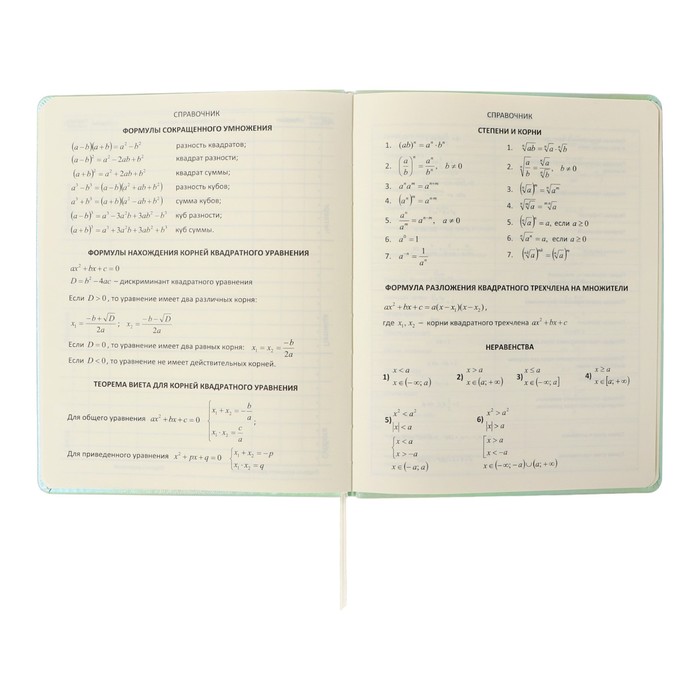 СПРАВОЧНИК
ФОРМУЛЫ СОКРАЩЕННОГО УМНОЖЕНИЯ
(a−b)(a+b)=a²−b² разность квадратов;
(a−b)²=a²−2ab+b² квадрат разности;
(a+b)²=a²+2ab+b² квадрат суммы;
a³−b³=(a−b)(a²+ab+b²) разность кубов;
a³+b³=(a+b)(a²−ab+b²) сумма кубов;
(a−b)³=a³−3a²b+3ab²−b³ куб разности;
(a+b)³=a³+3a²b+3ab²+b³ куб суммы.
ФОРМУЛЫ НАХОЖДЕНИЯ КОРНЕЙ КВАДРАТНОГО УРАВНЕНИЯ
ax²+bx+c=0
D=b²−4ac − дискриминант квадратного уравнения
Если D>0, то уравнение имеет два различных корня:
x₁=(−b+√D)/2a; x₂=(−b−√D)/2a
Если D=0, то уравнение имеет два равных корня: x₁=x₂=−b/2a
Если D<0, то уравнение не имеет действительных корней.
ТЕОРЕМА ВИЕТА ДЛЯ КОРНЕЙ КВАДРАТНОГО УРАВНЕНИЯ
Для общего уравнения ax²+bx+c=0 {x₁+x₂=−b/a;
x₁·x₂=c/a
Для приведенного уравнения x²+px+q=0 {x₁+x₂=−p
x₁·x₂=q
СПРАВОЧНИК
СТЕПЕНИ И КОРНИ
1. (ab)ⁿ=aⁿ·bⁿ
2. (a/b)ⁿ=aⁿ/bⁿ, b≠0
3. aⁿaᵐ=aⁿ⁺ᵐ
4. (aⁿ)ᵐ=aⁿᵐ
5. aⁿ/aᵐ=aⁿ⁻ᵐ, a≠0
6. a⁰=1
7. a⁻ⁿ=1/aⁿ
1. ⁿ√ab=ⁿ√a·ⁿ√b
2. ⁿ√(a/b)=ⁿ√a/ⁿ√b, b≠0
3. (ⁿ√a)ᵐ=ⁿ√aᵐ
4. ᵐ√ⁿ√a=ᵐⁿ√a
5. (ⁿ√a)ⁿ=a, если a≥0
6. ⁿ√aⁿ=a, если a≥0
7. (ⁿᵏ√a)ᵐᵏ=(ⁿ√a)ᵐ
ФОРМУЛА РАЗЛОЖЕНИЯ КВАДРАТНОГО ТРЕХЧЛЕНА НА МНОЖИТЕЛИ
ax²+bx+c=a(x−x₁)(x−x₂),
где x₁, x₂ − корни квадратного трехчлена ax²+bx+c
НЕРАВЕНСТВА
1) x<a
x∈(−∞; a)
2) x>a
x∈(a; +∞)
3) x≤a
x∈(−∞; a]
4) x≥a
x∈[a; +∞)
5) x²<a²
|x|<a
{x<a
x>−a
x∈(−a; a)
6) x²>a²
|x|>a
[x>a
x<−a
x∈(−∞; −a)∪(a; +∞)